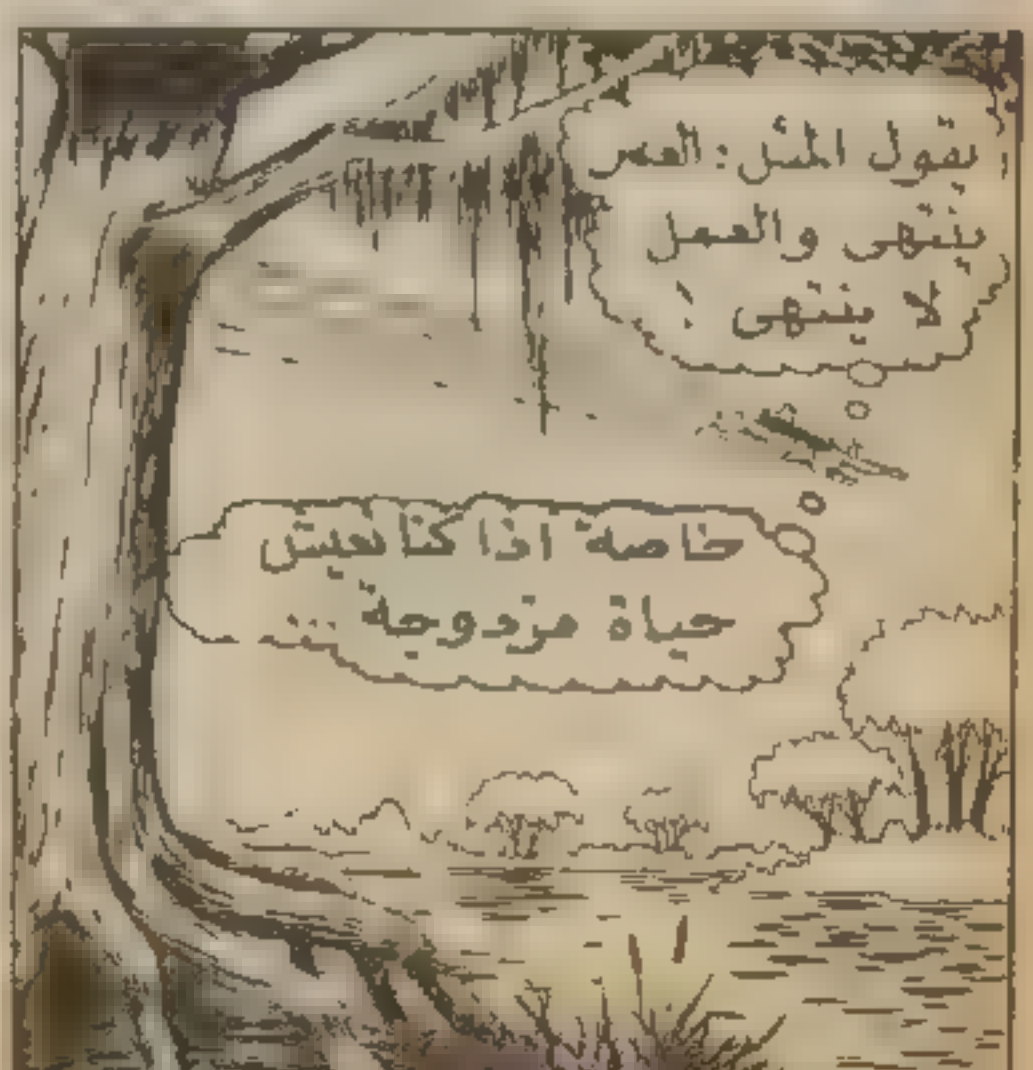 يقول المثل: العمر
ينتهى والعمل
لا ينتهى !
خاصة اذا كنا نعيش
حياة مزدوجة ...